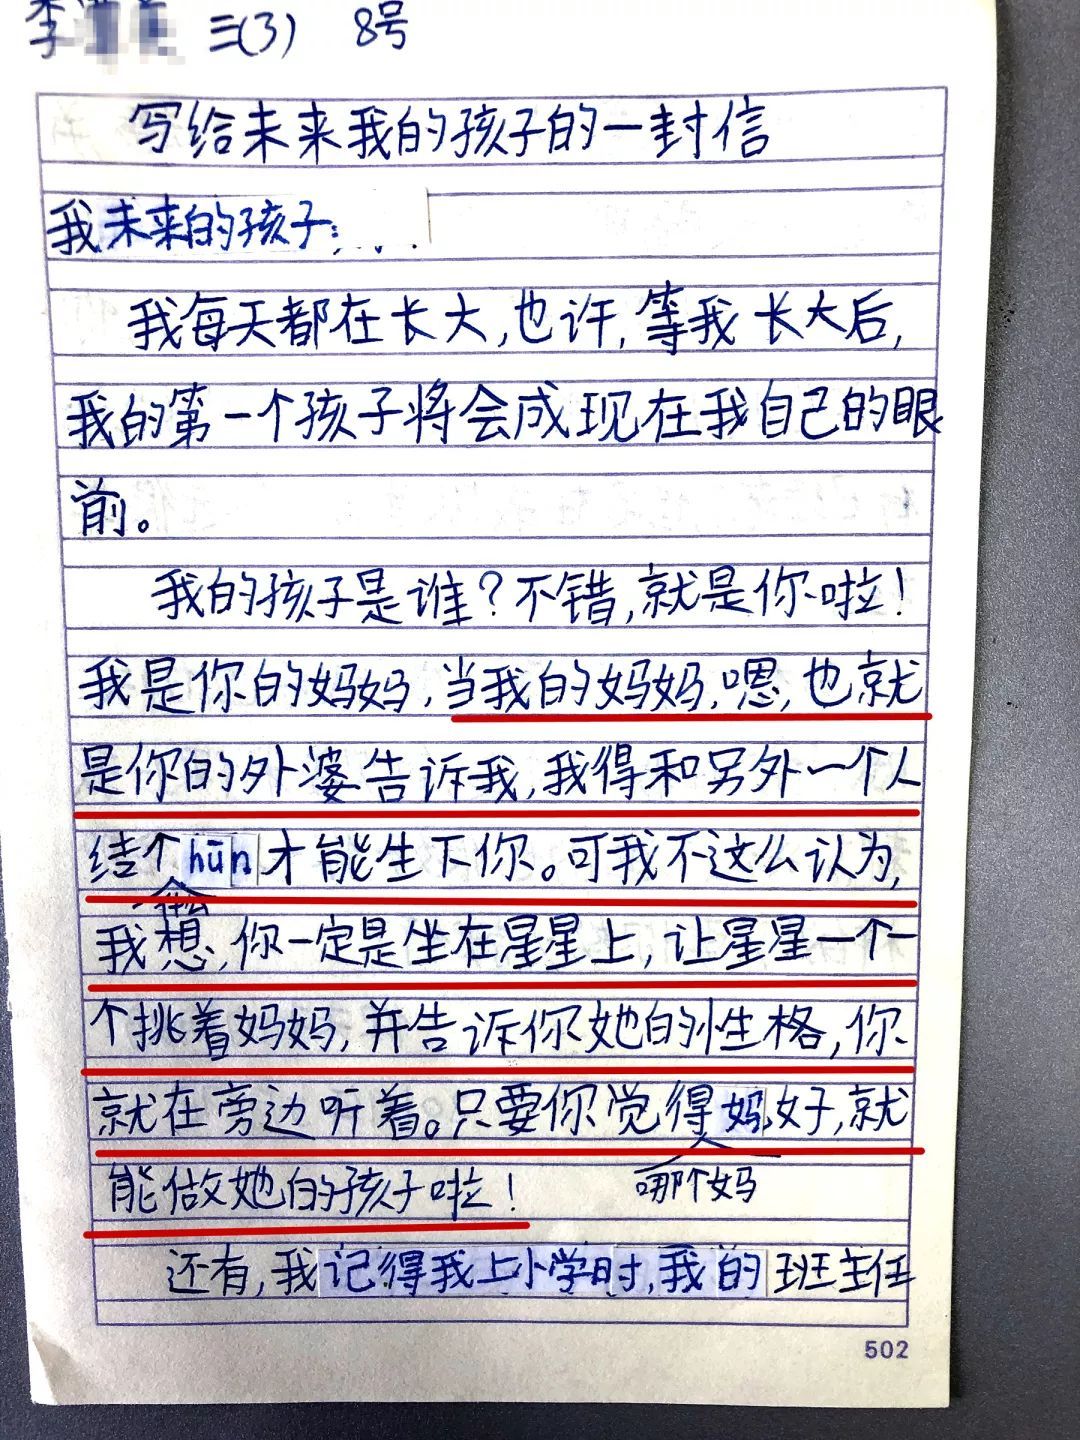 李 三(3) 8号
写给未来我的孩子的一封信
我未来的孩子:
我每天都在长大,也许,等我长大后,
我的第一个孩子将会成现在我自己的眼
前。
我的孩子是谁?不错,就是你啦!
我是你的妈妈,当我的妈妈,嗯,也就
是你的外婆告诉我,我得和另外一个人
结个hūn才能生下你。可我不这么认为,
我想,你一定是坐在星星上,让星星一个一
个挑着妈妈,并告诉你她的性格,你
就在旁边听着。只要你觉得妈好,就
哪个妈
能做她的孩子啦!
还有,我记得我上小学时,我的班主任
502